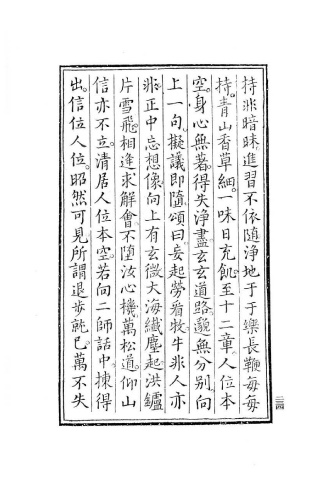 持非暗昧進習不依隨淨地于于長鞭每每
持。青山香草細。一味日充飢。至十二章人位本
空。身心無著。得失淨盡。玄玄道路。邈無分別。向
上一句。擬議即隨。頌曰。妄起勞看牧。牛非人亦
非。正中忘想像。向上有玄微。大海纖塵起。洪鑪
片雪飛。相逢求解會。不墮汝心機。萬松道。仰山
信亦不立。清居人位本空。若向二師話中揀得
出。信位人位。昭然可見。所謂退步就已。萬不失
二三四